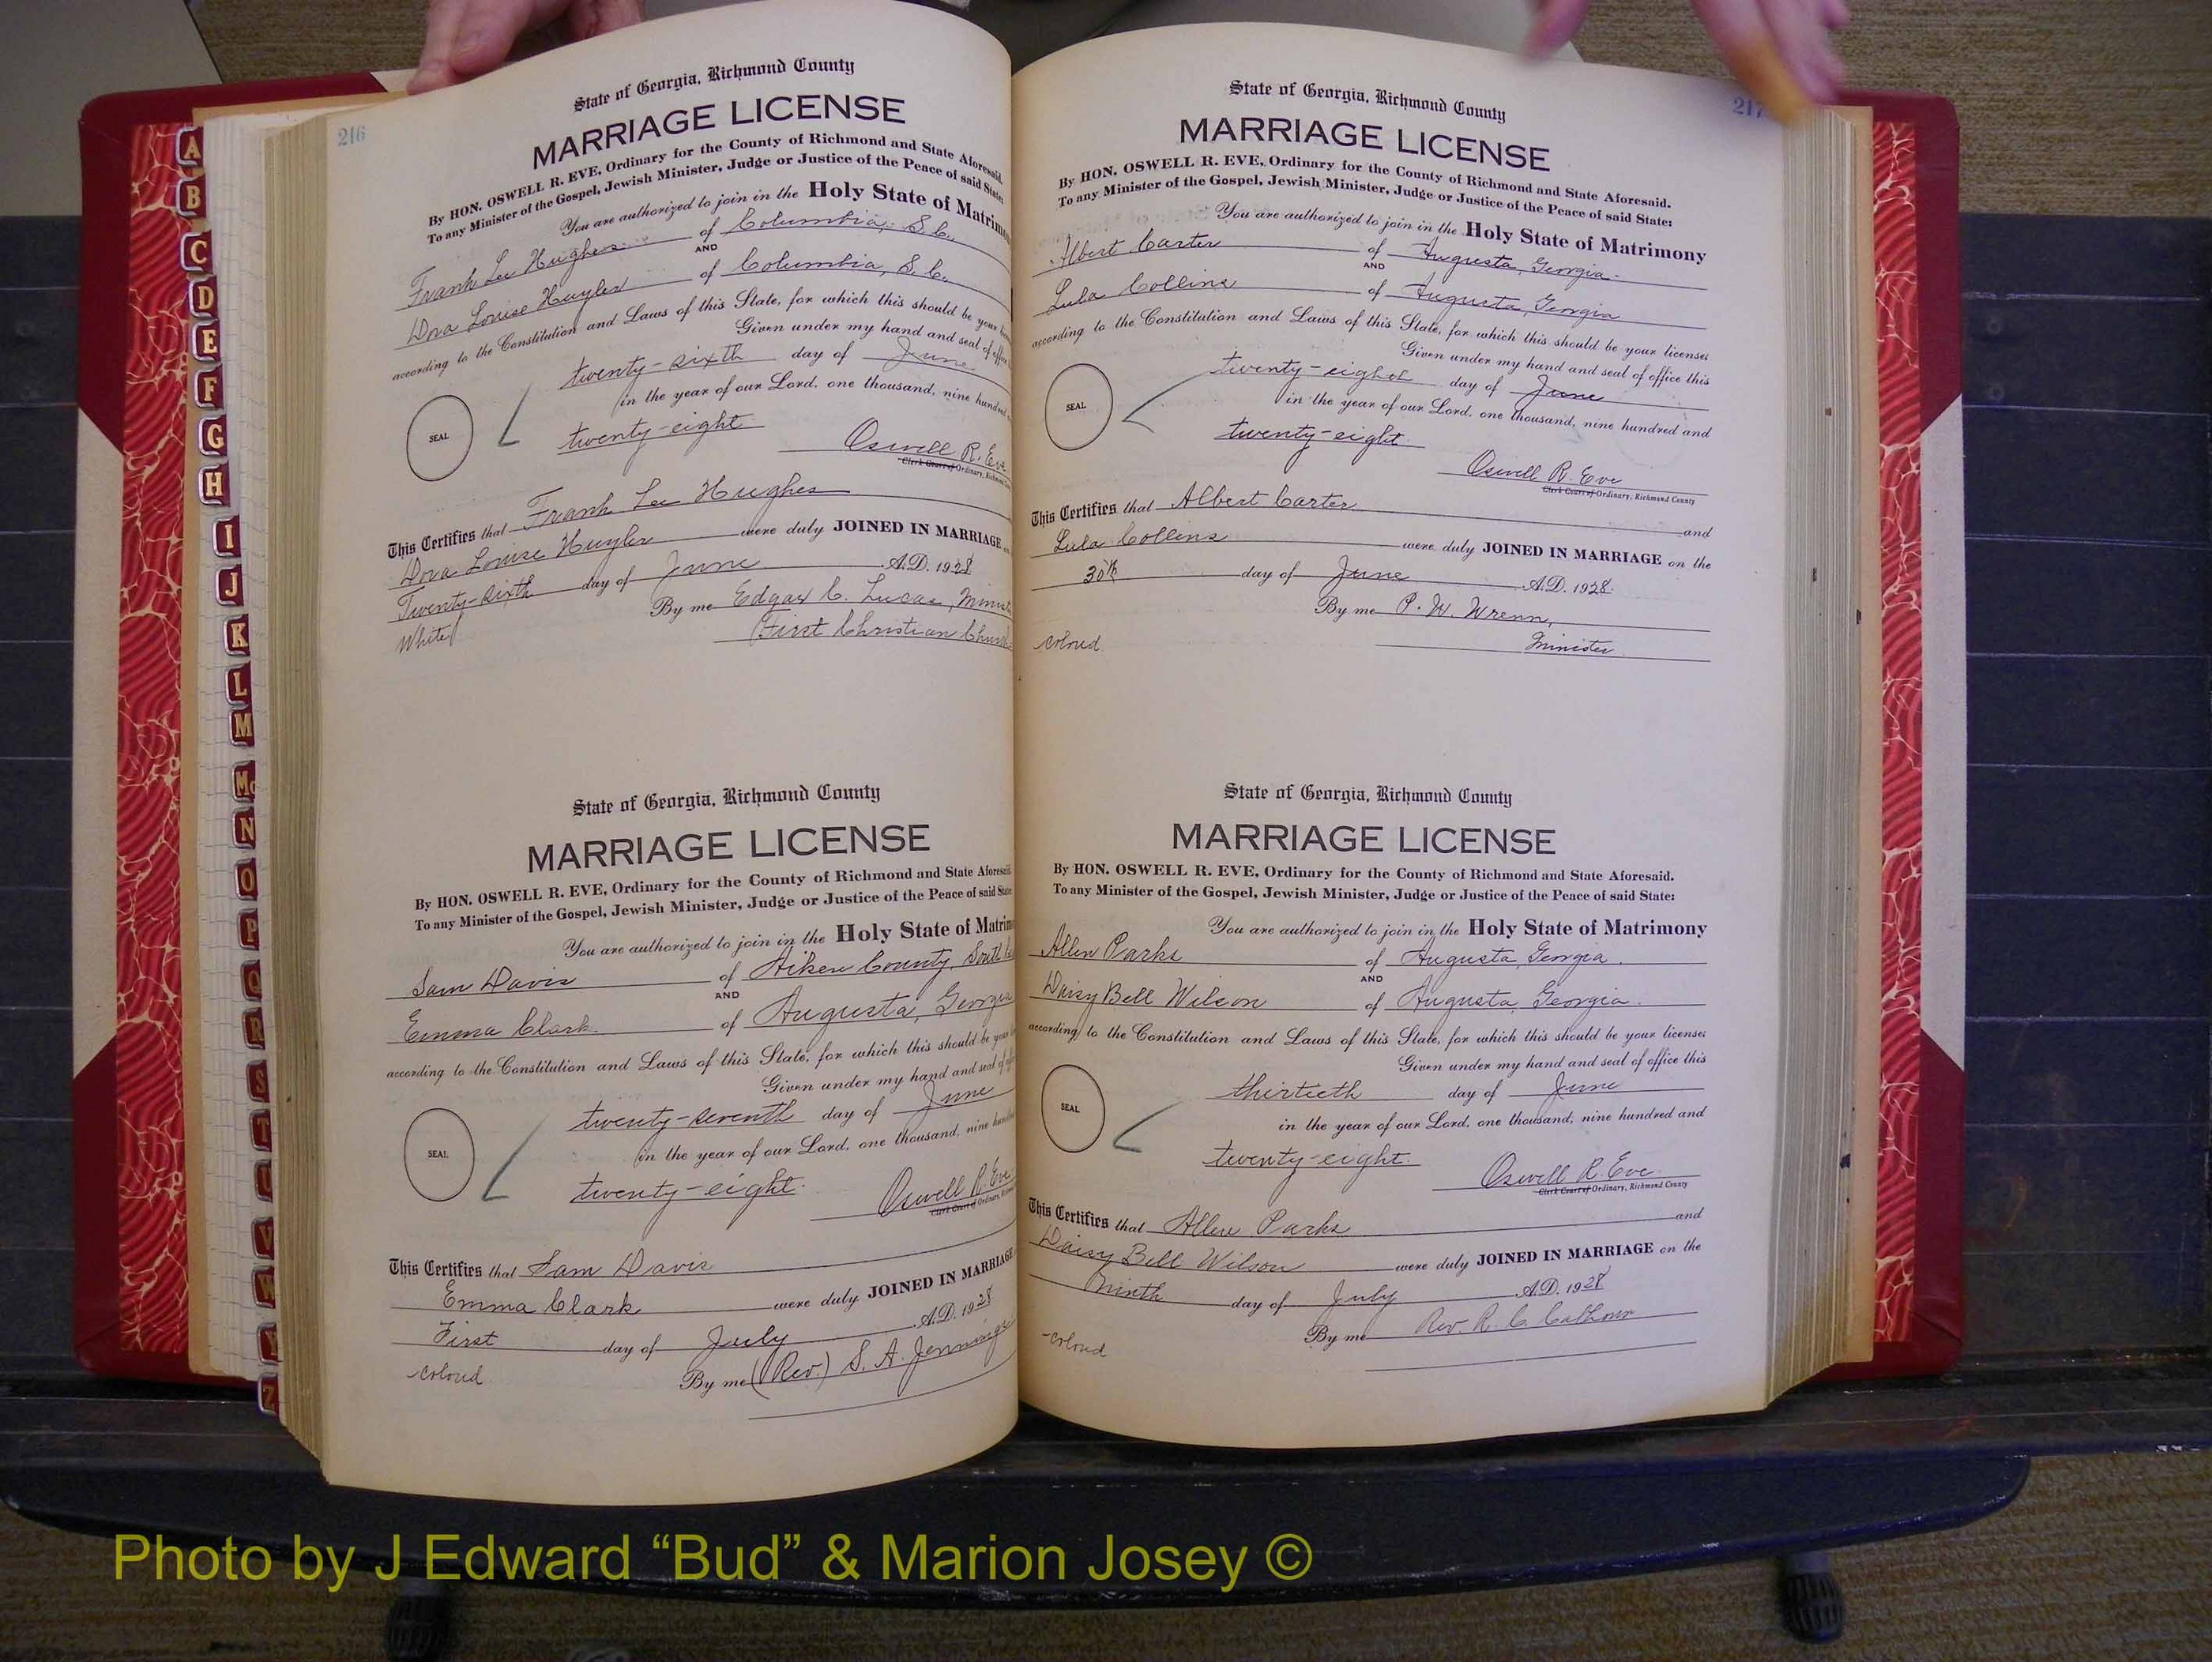 216
State of Georgia, Richmond County
MARRIAGE LICENSE
By HON. OSWELL R. EVE, Ordinary for the County of Richmond and State Aforesaid.
To any Minister of the Gospel, Jewish Minister, Judge or Justice of the Peace of said State:
You are authorized to join in the Holy State of Matrimo
Frank Lee Hughes of Columbia, S.C.
AND
Dora Louise Huyler of Columbia, S.C.
according to the Constitution and Laws of this State, for which this should be your
Given under my hand and seal of office
twenty-sixth day of June
in the year of our Lord, one thousand, nine hundred
SEAL
twenty-eight
Oswell R. Eve
Clerk Court of Ordinary, Richmond
This Certifies that Frank Lee Hughes
Dora Louise Huyler were duly JOINED IN MARRIAGE
Twenty-sixth day of June A.D. 1928
By me Edgar C. Lucas, Minist
White
First Christian Church
State of Georgia, Richmond County
MARRIAGE LICENSE
By HON. OSWELL R. EVE, Ordinary for the County of Richmond and State Aforesaid.
To any Minister of the Gospel, Jewish Minister, Judge or Justice of the Peace of said State
You are authorized to join in the Holy State of Matrim
Sam Davis of Aiken County, South
AND
Emma Clark of Augusta, Georgia
according to the Constitution and Laws of this State, for which this should be your
Given under my hand and seal of
twenty-seventh day of June
in the year of our Lord, one thousand, nine
SEAL
twenty-eight.
Oswell R. Eve
Clerk Court of Ordinary,
This Certifies that Sam Davis
Emma Clark were duly JOINED IN MARRIAGE
First day of July A.D. 1928
colored By me (Rev.) S. A. Jennings
217
State of Georgia, Richmond County
MARRIAGE LICENSE
By HON. OSWELL R. EVE, Ordinary for the County of Richmond and State Aforesaid.
To any Minister of the Gospel, Jewish Minister, Judge or Justice of the Peace of said State:
You are authorized to join in the Holy State of Matrimony
Albert Carter of Augusta, Georgia.
AND
Lula Collins of Augusta, Georgia
according to the Constitution and Laws of this State, for which this should be your license:
Given under my hand and seal of office this
twenty-eighth day of June
in the year of our Lord, one thousand, nine hundred and
SEAL
twenty-eight.
Oswell R. Eve
Clerk Court of Ordinary, Richmond County
This Certifies that Albert Carter and
Lula Collins were duly JOINED IN MARRIAGE on the
30th day of June A.D. 1928.
By me P. W. Wrenn,
colored Minister
State of Georgia, Richmond County
MARRIAGE LICENSE
By HON. OSWELL R. EVE, Ordinary for the County of Richmond and State Aforesaid.
To any Minister of the Gospel, Jewish Minister, Judge or Justice of the Peace of said State:
You are authorized to join in the Holy State of Matrimony
Allen Parks of Augusta, Georgia.
AND
Daisy Bell Wilson of Augusta, Georgia.
according to the Constitution and Laws of this State, for which this should be your license:
Given under my hand and seal of office this
thirtieth day of June
in the year of our Lord, one thousand, nine hundred and
SEAL
twenty-eight.
Oswell R. Eve
Clerk Court of Ordinary, Richmond County
This Certifies that Allen Parks and
Daisy Bell Wilson were duly JOINED IN MARRIAGE on the
Ninth day of July A.D. 1928
By me Rev. R. C. Calhoun
colored
A
B
C
D
E
F
G
H
I
J
K
L
M
Mc
N
O
P
Q
R
S
T
U
V
W
Y
Z
Photo by J Edward “Bud” & Marion Josey ©